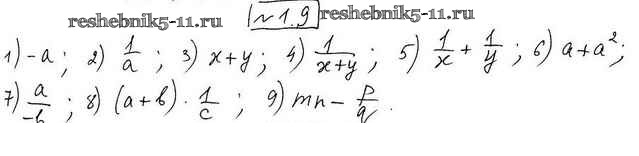 reshebnik5-11.ru №1.9 reshebnik5-11.ru
1) -a; 2) 1/a; 3) x+y; 4) 1/(x+y); 5) 1/x + 1/y; 6) a+a²;
7) a/-b; 8) (a+b)·1/c; 9) mn - p/q.